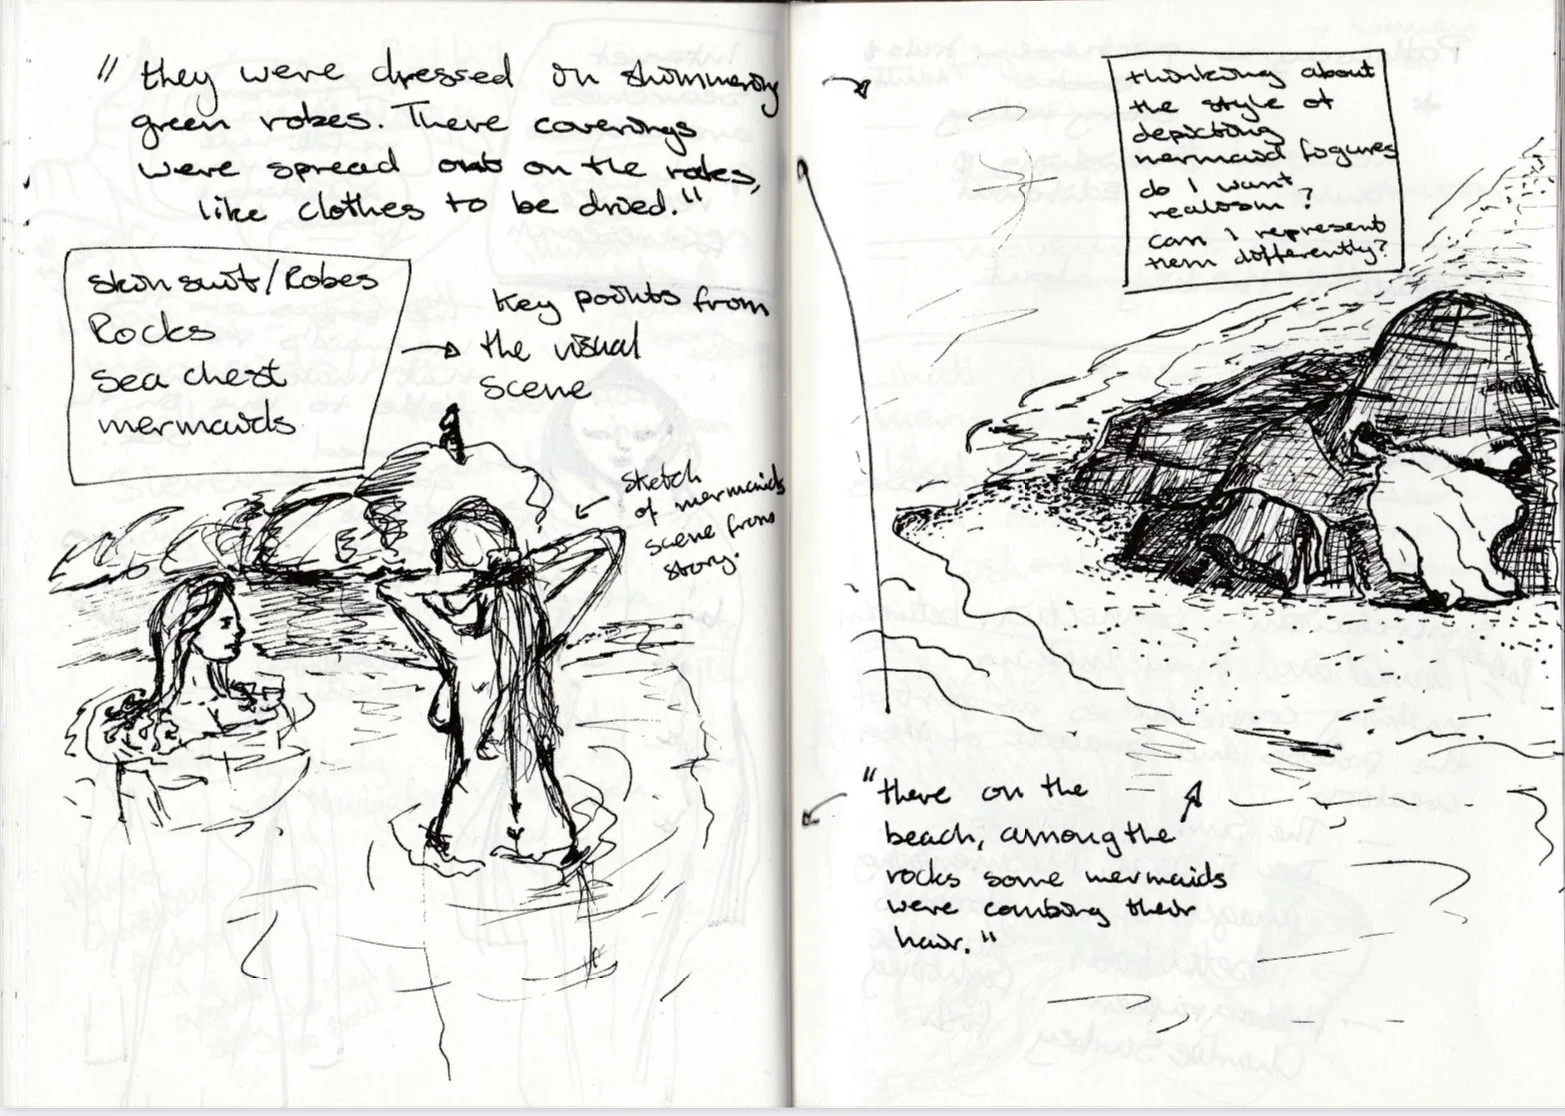 "they were dressed in shimmering
green robes. There coverings
were spread out on the rocks,
like clothes to be dried."
Skin suit/Robes
Rocks
Sea chest
mermaids
Key points from
the visual
scene
sketch
of mermaids
scene from
story.
thinking about
the style of
depicting
mermaid figures
do I want
realism?
can I represent
them differently?
"there on the
beach, among the
rocks some mermaids
were combing their
hair."